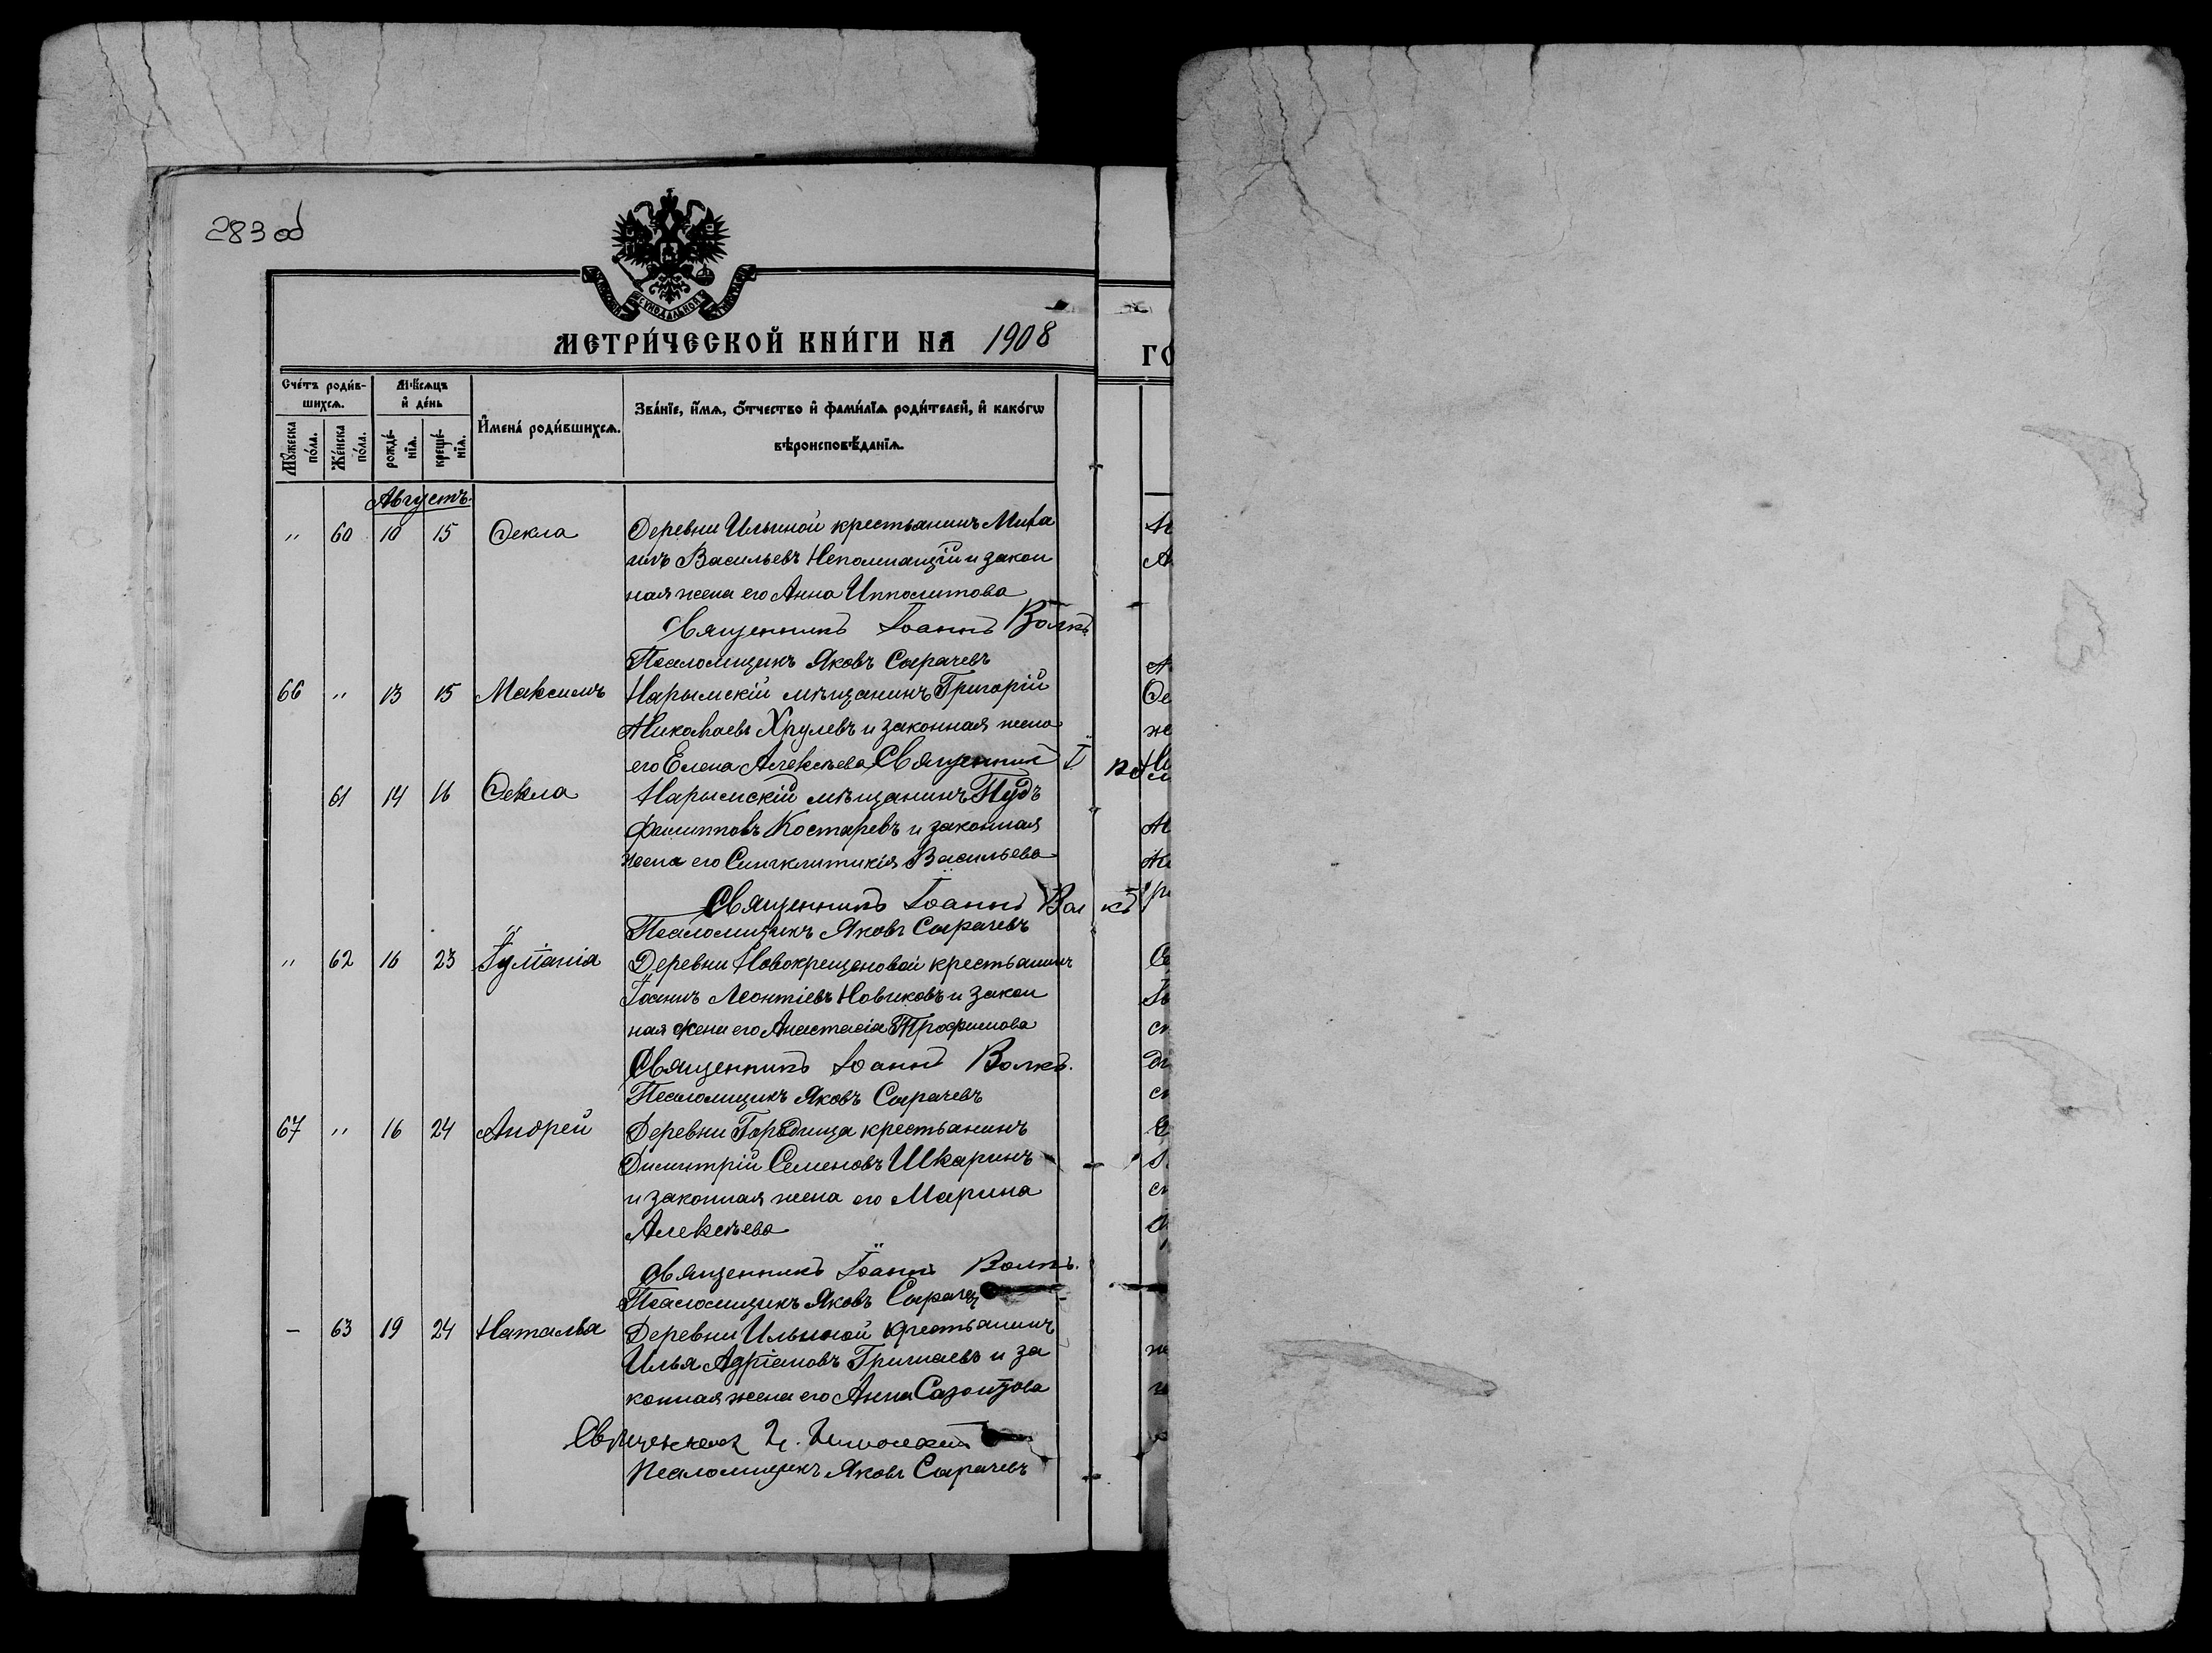 283 об
МЕТРИ́ЧЕСКОЙ КНИ́ГИ НА 1908
ГО
Сче́тъ роди́в-
шихсѧ.
Мѣ́сѧцъ
и҆ де́нь
И҆мена̀ роди́вшихсѧ.
Зва́нїе, и҆́мѧ, ѻ҆́тчество и҆ фами́лїѧ роди́телей, и҆ како́гѡ
вѣроисповѣ́данїѧ.
Мꙋ́жеска по́ла.
Же́нска по́ла.
рожде́-
нїѧ.
креще́-
нїѧ.
Августъ.
" 60 10 15 Ѳекла Деревни Ильиной крестьянинъ Миха
илъ Васильевъ Непомнащій и закон
ная жена его Анна Ипполитова
Священникъ Іоаннъ Волкъ
Псаломщикъ Яковъ Сырачевъ
66 " 13 15 Максимъ Нарымскій мѣщанинъ Григорій
Николаевъ Хрулевъ и законная жена
его Елена Алексѣева Священник І
61 14 16 Ѳекла Нарымскій мѣщанинъ Пудъ
Филипповъ Костаревъ и законная
жена его Синклитикія Васильева
Священникъ Іоаннъ Вол къ
Псаломщикъ Яковъ Сырачевъ
" 62 16 23 Іуліанія Деревни Новокрещеновой крестьянинъ
Іоаннъ Леонтіевъ Новиковъ и закон
ная жена его Анастасія Трофимова
Священникъ Іоаннъ Волкъ.
Псаломщикъ Яковъ Сырачевъ
67 " 16 24 Андрей Деревни Городища крестьянинъ
Димитрій Семеновъ Шкаринъ
и законная жена его Марина
Алексѣева
Священникъ Іоаннъ Волкъ.
Псаломщикъ Яковъ Сырачев
– 63 19 24 Наталья Деревни Ильиной крестьянинъ
Илья Адріановъ Гришаевъ и за
конная жена его Анна Сазонтова
Священник
Псаломщикъ Яковъ Сырачевъ